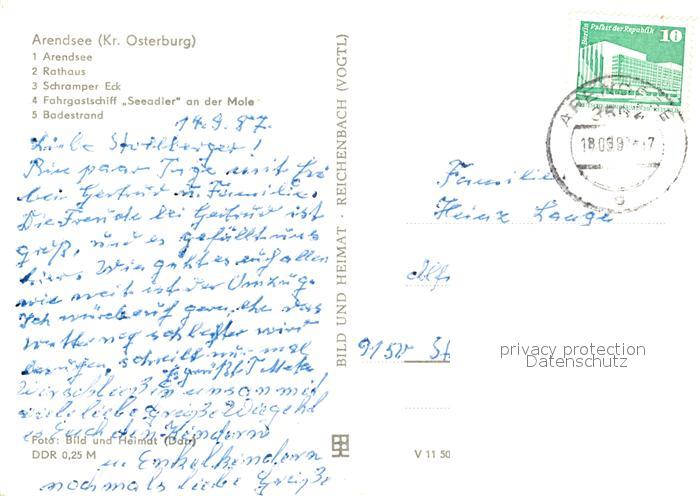 Arendsee (Kr. Osterburg)
1 Arendsee
2 Rathaus
3 Schramper Eck
4 Fahrgastschiff „Seeadler" an der Mole
5 Badestrand
14.9.87.
Liebe Stollberger!
Bin paar Tage mit
bei Gertrud u. Familie.
Die Freude bei Gertrud ist
groß, und es gefällt uns
hier. Wie geht es euch allen
wie weit ist der Umzug.
Ich würde auf gern, ehe das
Wetter noch schlechter wird
schreibt nur mal
Es grüßt T. Meta
Wir schließen uns an mit
viele liebe Grüße Wie geht
es Euch den Kindern
u Enkelkindern
nochmals liebe Grüße
Foto: Bild und Heimat (Darr)
DDR 0,25 M
BILD UND HEIMAT · REICHENBACH (VOGTL)
V 11 50
Berlin Palast der Republik
10
ARENDSEE
3554
18.09.9
Familie
Heinz Lange
9150 St
privacy protection
Datenschutz